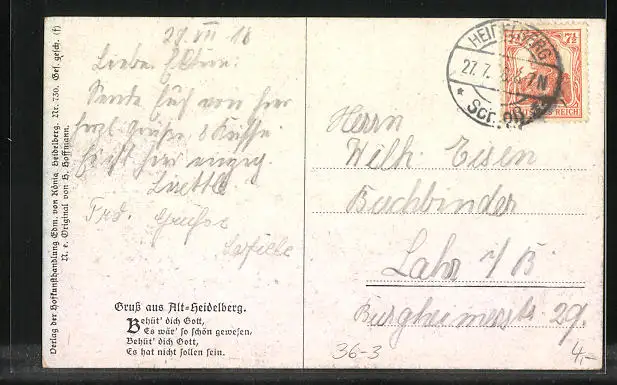 27. VII 18
Liebe Eltern!
Sende Euch von hier
herzl. Grüße & Küsse.
hier
Lisettle
Frd. Grüße
Verlag der Hofkunsthandlung Edm. von König, Heidelberg. Nr. 730. Ges. gesch. (f)
N. e. Original von H. Hoffmann.
Gruß aus Alt-Heidelberg.
Behüt' dich Gott,
Es wär' so schön gewesen,
Behüt' dich Gott,
Es hat nicht sollen sein.
HEIDELBERG
27. 7. 18. 6-7 N
7½
REICH
Herrn
Wilh. Eisen
Buchbinder
Lahr i/B
Burgheimerstr. 29.
36-3
4.-